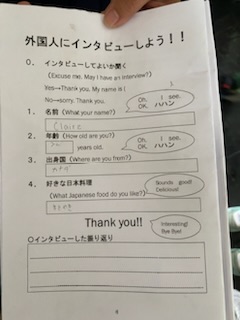 外国人にインタビューしよう！！
0. インタビューしてよいか聞く
(Excuse me. May I have an interview?)
Yes→Thank you. My name is (
No→sorry. Thank you.
Oh, I see.
OK ハハン
1. 名前 (What your name?)
Claire
2. 年齢 (How old are you?)
years old.
Oh, I see.
OK ハハン
3. 出身国 (Where are you from?)
4. 好きな日本料理
(What Japanese food do you like?)
Sounds good!
Delicious!
Thank you!!
Interesting!
Bye Bye!
○インタビューした振り返り